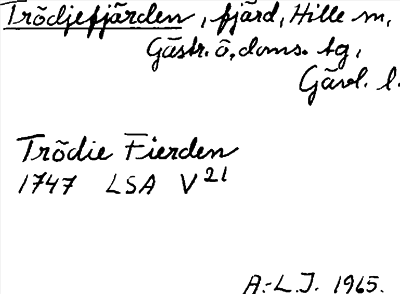 Trödjefjärden, fjärd, Hille sn,
Gästr. ö. doms. tg,
Gävl. l.
Trödie Fierden
1747 LSA V21
A.-L.J. 1965.